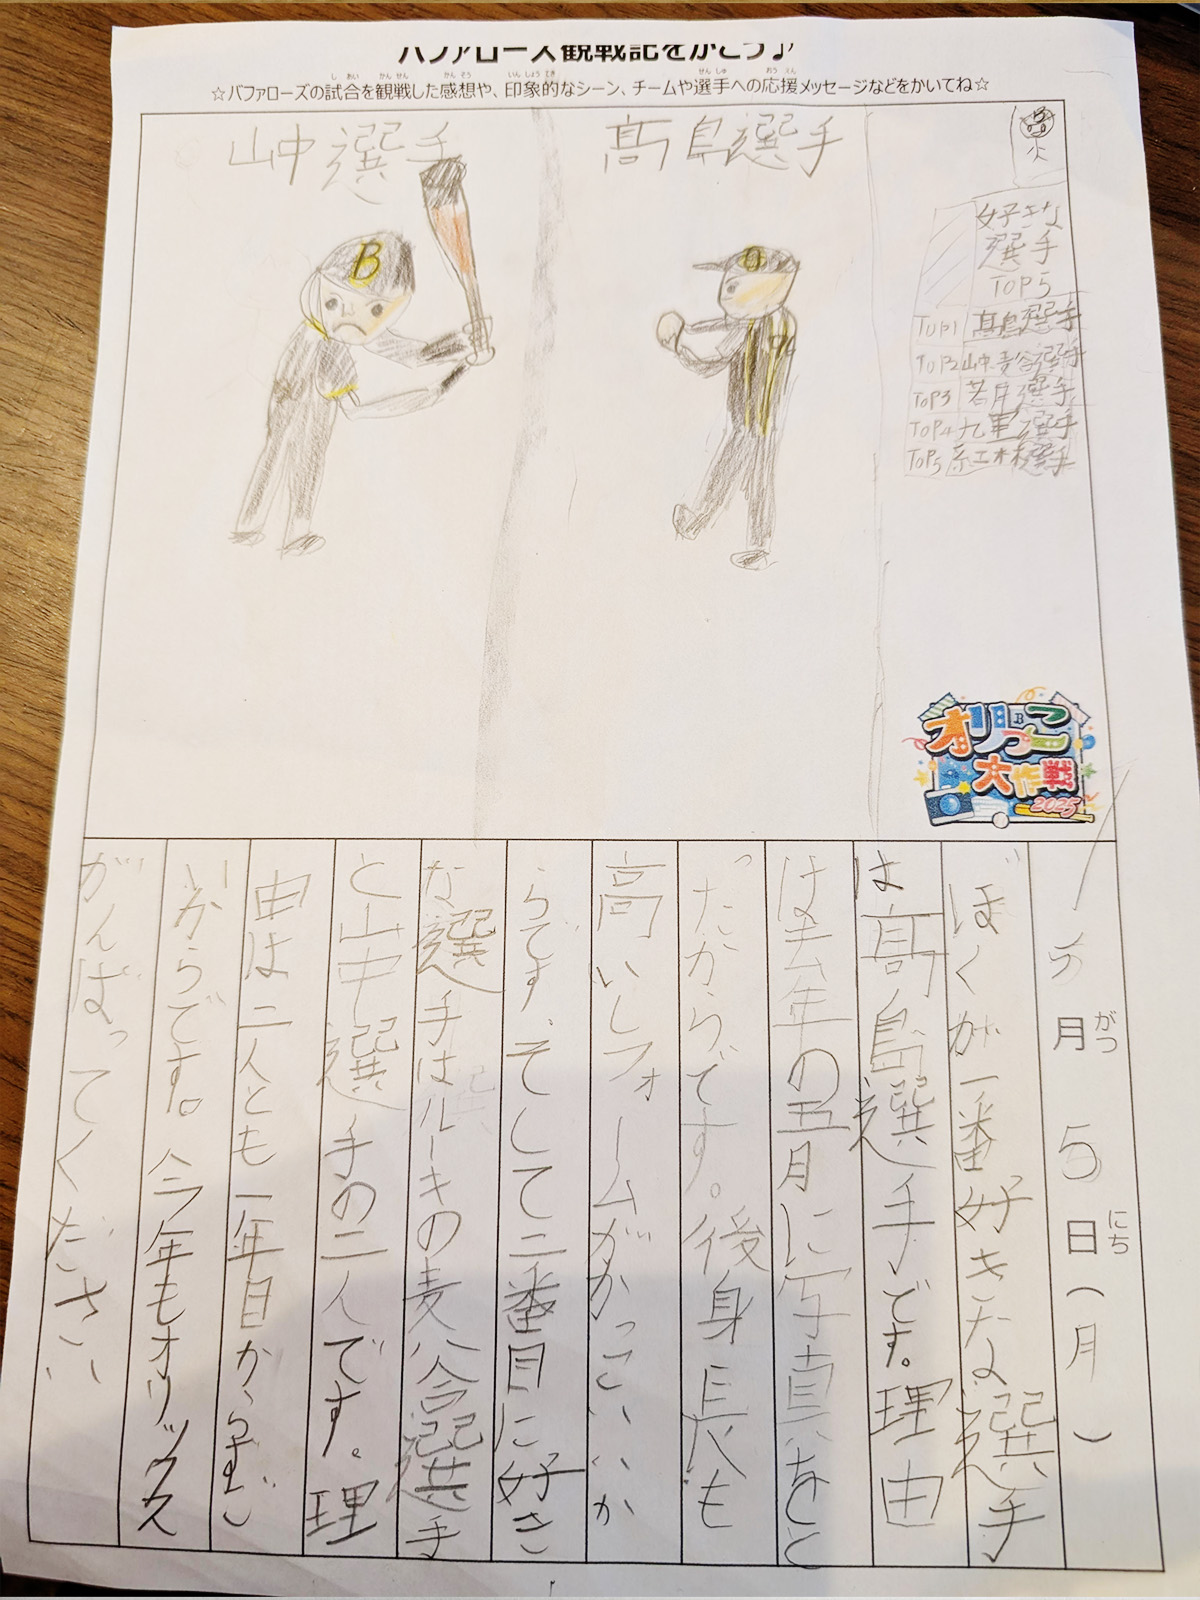 バファローズ観戦記をかこう♪
☆バファローズの試合を観戦した感想や、印象的なシーン、チームや選手への応援メッセージなどをかいてね☆
山中選手
髙島選手
B
好きな
選手
TOP5
TOP1 髙島選手
TOP2 山中麦谷選手
TOP3 若月選手
TOP4 九里選手
TOP5 紅林選手
オリっこ
大作戦
2025
5月5日(月)
ぼくが一番好きな選手
は髙島選手です。理由
は去年の五月に写真をと
ったからです。後身長も
高いしフォームがかっこいいか
らです。そして二番目に好き
な選手はルーキの麦谷選手
と山中選手の二人です。理
由は二人とも一年目からすご
いからです。今年もオリックス
がんばってください